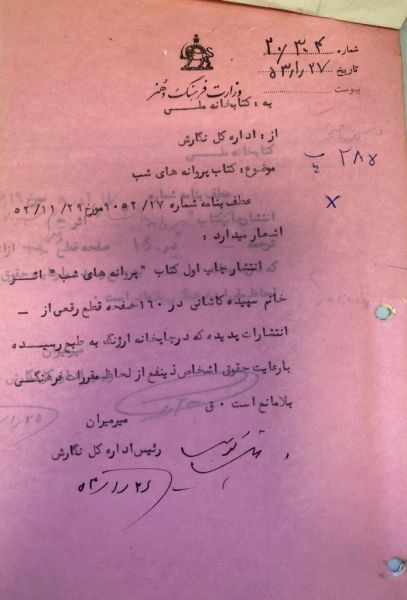 شماره ۲۰/۳۰۴
تاریخ ۵۳/۱/۲۷
پیوست
وزارت فرهنگ و هنر
به : کتابخانه ملی
از : اداره کل نگارش
موضوع : کتاب پروانه های شب
۲۸۵
عطف بنامه شماره ۹۰۵۲/۲۷ مورخ ۵۲/۱۱/۲۹
اشعار میدارد :
انتشار چاپ اول کتاب "پروانه های شب" اثر
خانم سپیده کاشانی در ۱۶۰ صفحه قطع رقعی از —
انتشارات پدیده که در چاپخانه ارژنگ به طبع رسیده
با رعایت حقوق اشخاص ذینفع از لحاظ مقررات فرهنگی
بلامانع است . ق
میرمیران
رئیس اداره کل نگارش